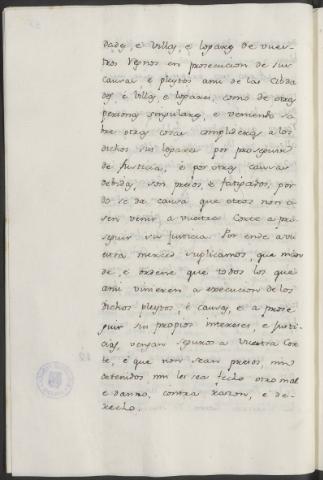 dades, è Villas, è logares de vues-
tros Regnos en prosecucion de sus
causas, è pleytos ansi de las Cibda
des è Villas, è logares, como de otras
personas singulares, e veniendo so-
bre otras cosas complideras à los
dichos sus logares por proseguir
de Justicia, è por otras causas
debidas, son presos, è fatigados, por
do se da causa que otros non o-
sen venir à vuestra Corte a pro-
seguir su justicia. Por ende a vu
estra merced suplicamos, que man
de, è ordene que todos los que
ansi vinieren a execucion de los
dichos pleytos, è causas, e a prose
guir sus propios intereses, e Justi-
cias, vengan seguros a Vuestra Cor-
te, è que non sean presos, nin
detenidos nin les sea fecho otro mal
e danno, contra razon, è de-
recho.